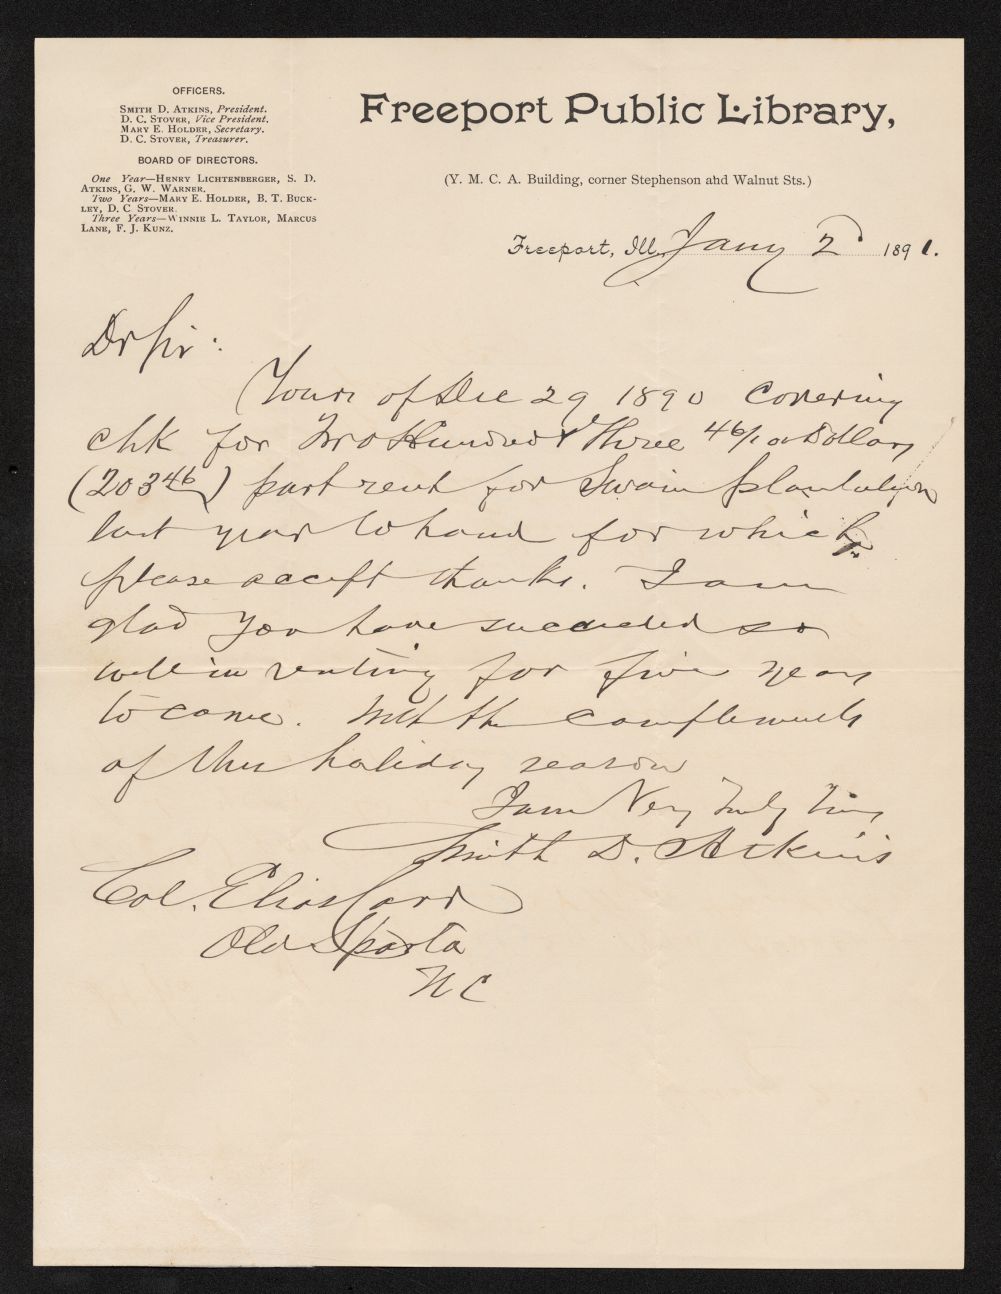 OFFICERS.
SMITH D. ATKINS, President.
D. C. STOVER, Vice President.
MARY E. HOLDER, Secretary.
D. C. STOVER, Treasurer.
BOARD OF DIRECTORS.
One Year—HENRY LICHTENBERGER, S. D.
ATKINS, G. W. WARNER.
Two Years—MARY E. HOLDER, B. T. BUCK-
LEY, D. C STOVER.
Three Years—WINNIE L. TAYLOR, MARCUS
LANE, F. J. KUNZ.
Freeport Public Library,
(Y. M. C. A. Building, corner Stephenson ahd Walnut Sts.)
Freeport, Ill, Jany 2d 1891.
Dr Sir:
Yours of Dec 29 1890 covering
chk for Two Hundred & Three 46/100 Dollars
(203 46) part rent for Swain plantation
last year to hand for which
please accept thanks. I am
glad you have succeeded so
well in renting for five years
to come. With the compliments
of the holiday season
I am Very Truly Yours
Smith D. Atkins
Col. Elias Carr
Old Sparta
N C